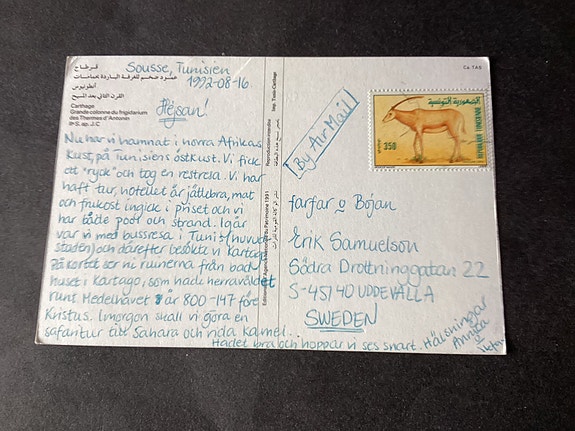 قرطاج
عمود ضخم للغرفة الباردة بحمامات
أنطونيوس
القرن الثاني بعد المسيح
Carthage
Grande colonne du frigidarium
des Thermes d'Antonin
IIe S. ap. J.C
Sousse, Tunisien
1992-08-16
Hejsan!
Nu har vi hamnat i norra Afrikas
kust, på Tunisiens östkust. Vi fick
ett "ryck" och tog en restresa. Vi har
haft tur, hotellet är jättebra, mat
och frukost ingick i priset och vi
har både pool och strand. Igår
var vi med bussresa i Tunis (huvud-
staden) och därefter besökte vi Kartago
På kortet ser ni ruinerna från bad-
huset i Kartago, som hade herraväldet
runt Medelhavet år 800-147 före
Kristus. Imorgon skall vi göra en
safaritur till Sahara och rida kamel.
Hadet bra och hoppar vi ses snart.
Hälsningar
Annika
o
Ca TA6
Reproduction interdite
Imp. Tunis-Carthage
By Air Mail
الجمهورية التونسية
350
REPUBLIQUE TUNISIENNE
farfar o Bojan
Erik Samuelson
Södra Drottninggatan 22
S-451 40 UDDEVALLA
SWEDEN